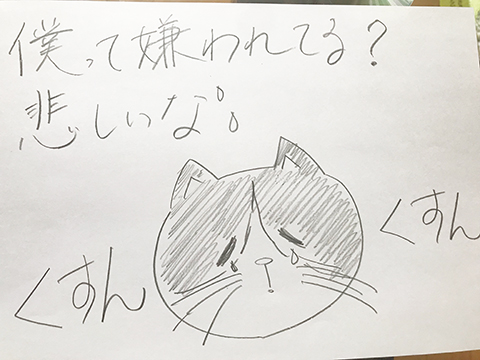 僕って嫌われてる?
悲しいな。
くすん
くすん